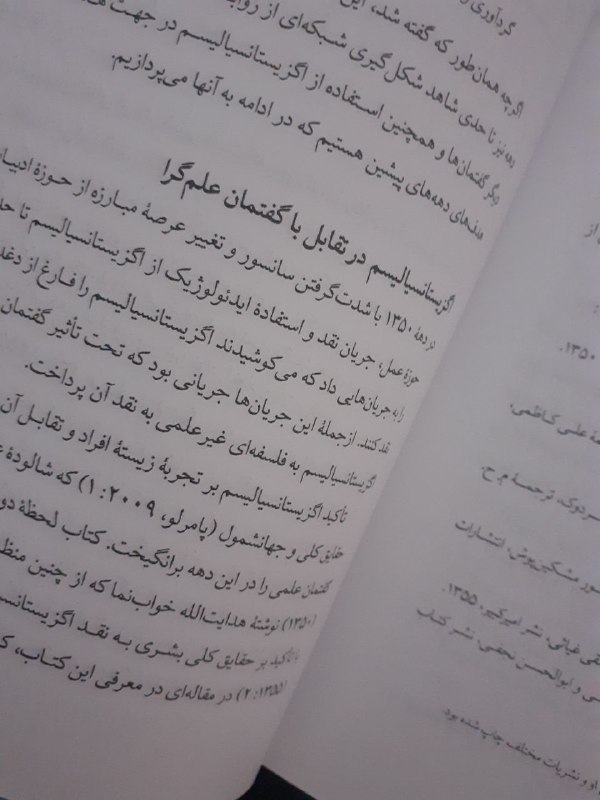 گردآوری
اگرچه همان‌طور که گفته شد، این
دهه نیز تا حدی شاهد شکل‌گیری شبکه‌ای از
دیگر گفتمان‌ها و همچنین استفاده از اگزیستانسیالیسم در جهت
هدف‌های دهه‌های پیشین هستیم که در ادامه به آنها می‌پردازیم.
اگزیستانسیالیسم در تقابل با گفتمان علم‌گرا
در دههٔ ۱۳۵۰ با شدت گرفتن سانسور و تغییر عرصهٔ مبارزه از حوزهٔ
حوزهٔ عمل، جریان نقد و استفادهٔ ایدئولوژیک از اگزیستانسیالیسم تا
را به جریان‌هایی داد که می‌کوشیدند اگزیستانسیالیسم را فارغ از
نقد کنند. ازجملهٔ این جریان‌ها جریانی بود که تحت تأثیر گفتمان
اگزیستانسیالیسم به فلسفه‌ای غیرعلمی به نقد آن پرداخت.
تأکید اگزیستانسیالیسم بر تجربهٔ زیستهٔ افراد و تقابل آن
حقایق کلی و جهانشمول (پامرلو، ۲۰۰۹: ۱) که شالودهٔ
گفتمان علمی را در این دهه برانگیخت. کتاب لحظهٔ
(۱۳۵۰) نوشتهٔ هدایت‌الله خواب‌نما که از چنین
با تأکید بر حقایق کلی بشری به نقد
(۱۳۵۵: ۲) در مقاله‌ای در معرفی این کتاب،
از
۱۳۵۰.
علی کاظمی،
ترجمهٔ م. ح.
مشکین‌پوش، انتشارات
غیاثی، نشر امیرکبیر، ۱۳۵۵.
و ابوالحسن نجفی، نشر کتاب
او و نشریات مختلف چاپ شده بود.